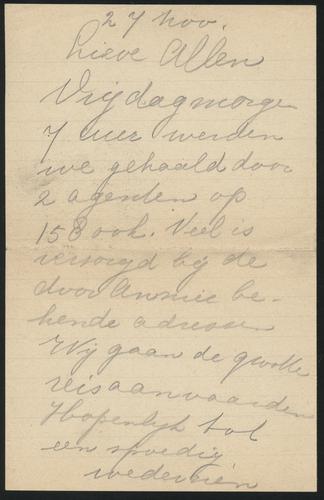 27 Nov.
Lieve Allen
Vrijdagmorge
7 uur werden
we gehaald door
2 agenten op
158 ook. Veel is
versorgd bij de
door Annie be-
kende adressen
Wij gaan de groote
reis aanvaarden
Hopenlijk tot
een spoedig
wederzien